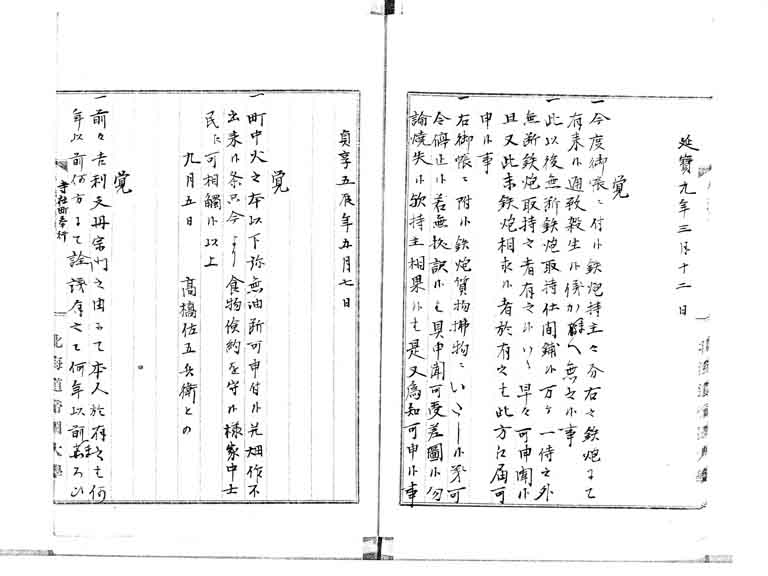 延寳九年三月十二日
覚
一今度御帳ニ付候鉄炮持主々分右之鉄炮ニて
有来候通致殺生候儀かヘ無之候事
一此以後無断鉄炮取持仕間鋪候万ヶ一侍之外
無断鉄炮取持之者有之候ハヽ早々可申聞候
且又此末鉄炮相求候者於有之も此方江届可
申候事
一右御帳ニ附候鉄炮質物拂物ニいたし候義可
令停止候若無拠訳候ハ其申聞可受差圖候勿
論焼失候歟持主相果候ハ是又為知可申候事
貞享五辰年五月七日
覚
一町中火之本以下弥無油断可申付候尤畑作不
出来候条只今より食物倹約を守候様家中士
民ニ可相觸候以上
九月五日 髙橋佐五兵衛との
覚
一前々吉利支丹宗門之由ニて本人於有之も何
年以前何方ニて詮議有之て何年以前
寺社町奉行
北海道帝國大學